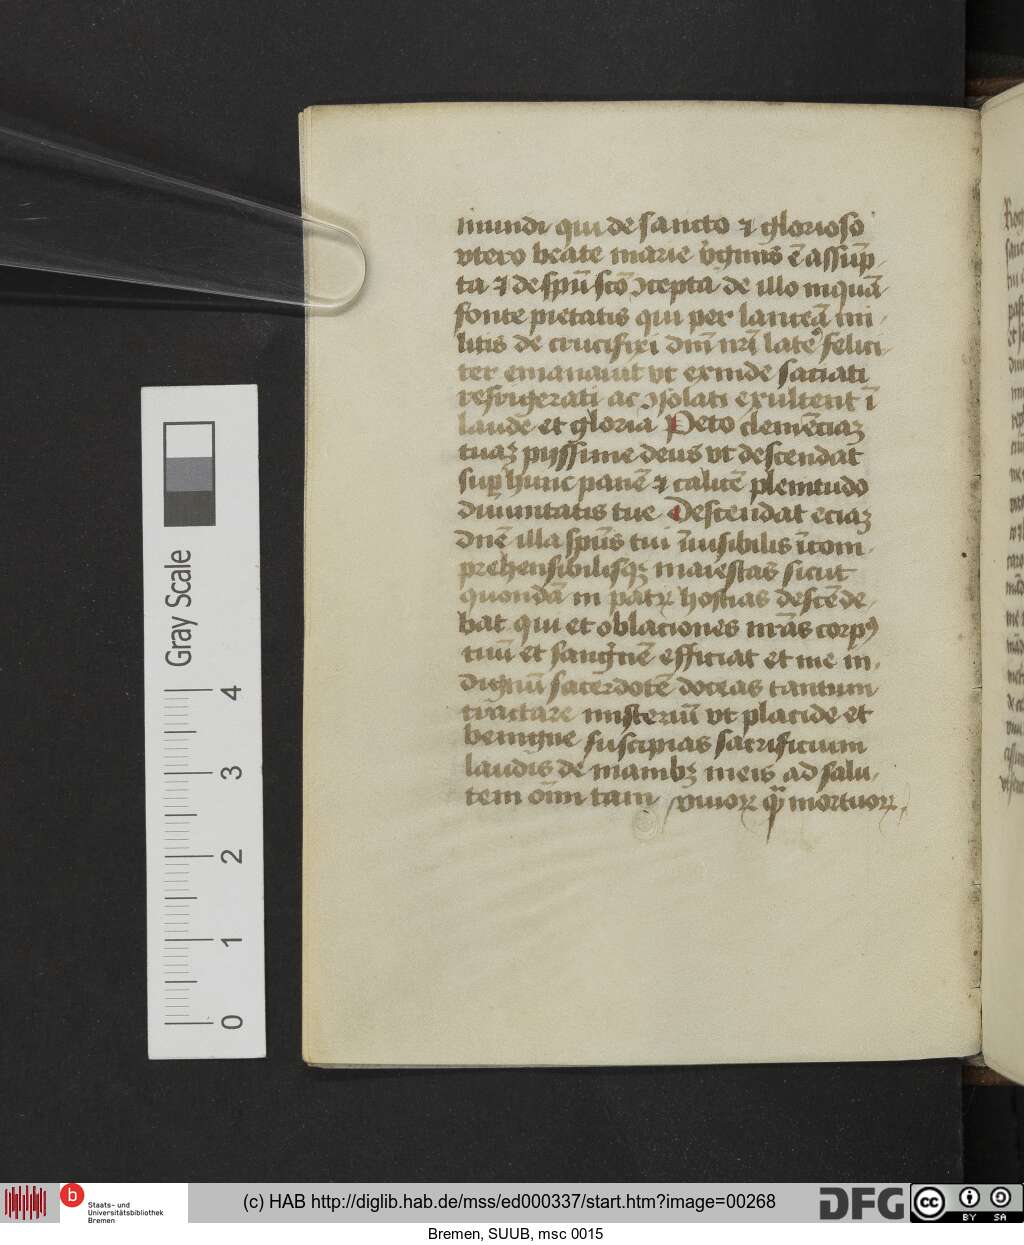 mundi qui de sancto ⁊ glorioso
vtero beate marie v̾ginis ē assūp-
ta ⁊ de spū scō ↄcepta de illo inquā
fonte pietatis qui per lanceā mi-
litis de crucifixi dnī nrī late᷒ felici-
ter emanauit vt exinde saciati
refrigerati ac ↄsolati exultent ī
laude et gloria Peto clemēciaꝫ
tuaꝫ pijssime deus vt descendat
suꝑ hunc panē ⁊ calicē plenitudo
diuinitatis tue Descendat eciaꝫ
dnē illa spūs tui īuisibilis īcom-
prehensibilisqꝫ maiestas sicut
quondā in patꝝ hostias descēde-
bat qui et oblaciones nrās corpꝰ
tuū et sang̾nē efficiat et me in-
dignū sacerdotē doceas tantum
tractare misteriū vt placide et
benigne suscipias sacrificium
laudis de manibꝫ meis ad salu-
tem oīm tam viuoꝝ qͣ̄ mortuoꝝ.
Gray Scale
4
3
2
1
0
b
Staats- und
Universitätsbibliothek
Bremen
(c) HAB http://diglib.hab.de/mss/ed000337/start.htm?image=00268
DFG
cc
BY SA
Bremen, SUUB, msc 0015